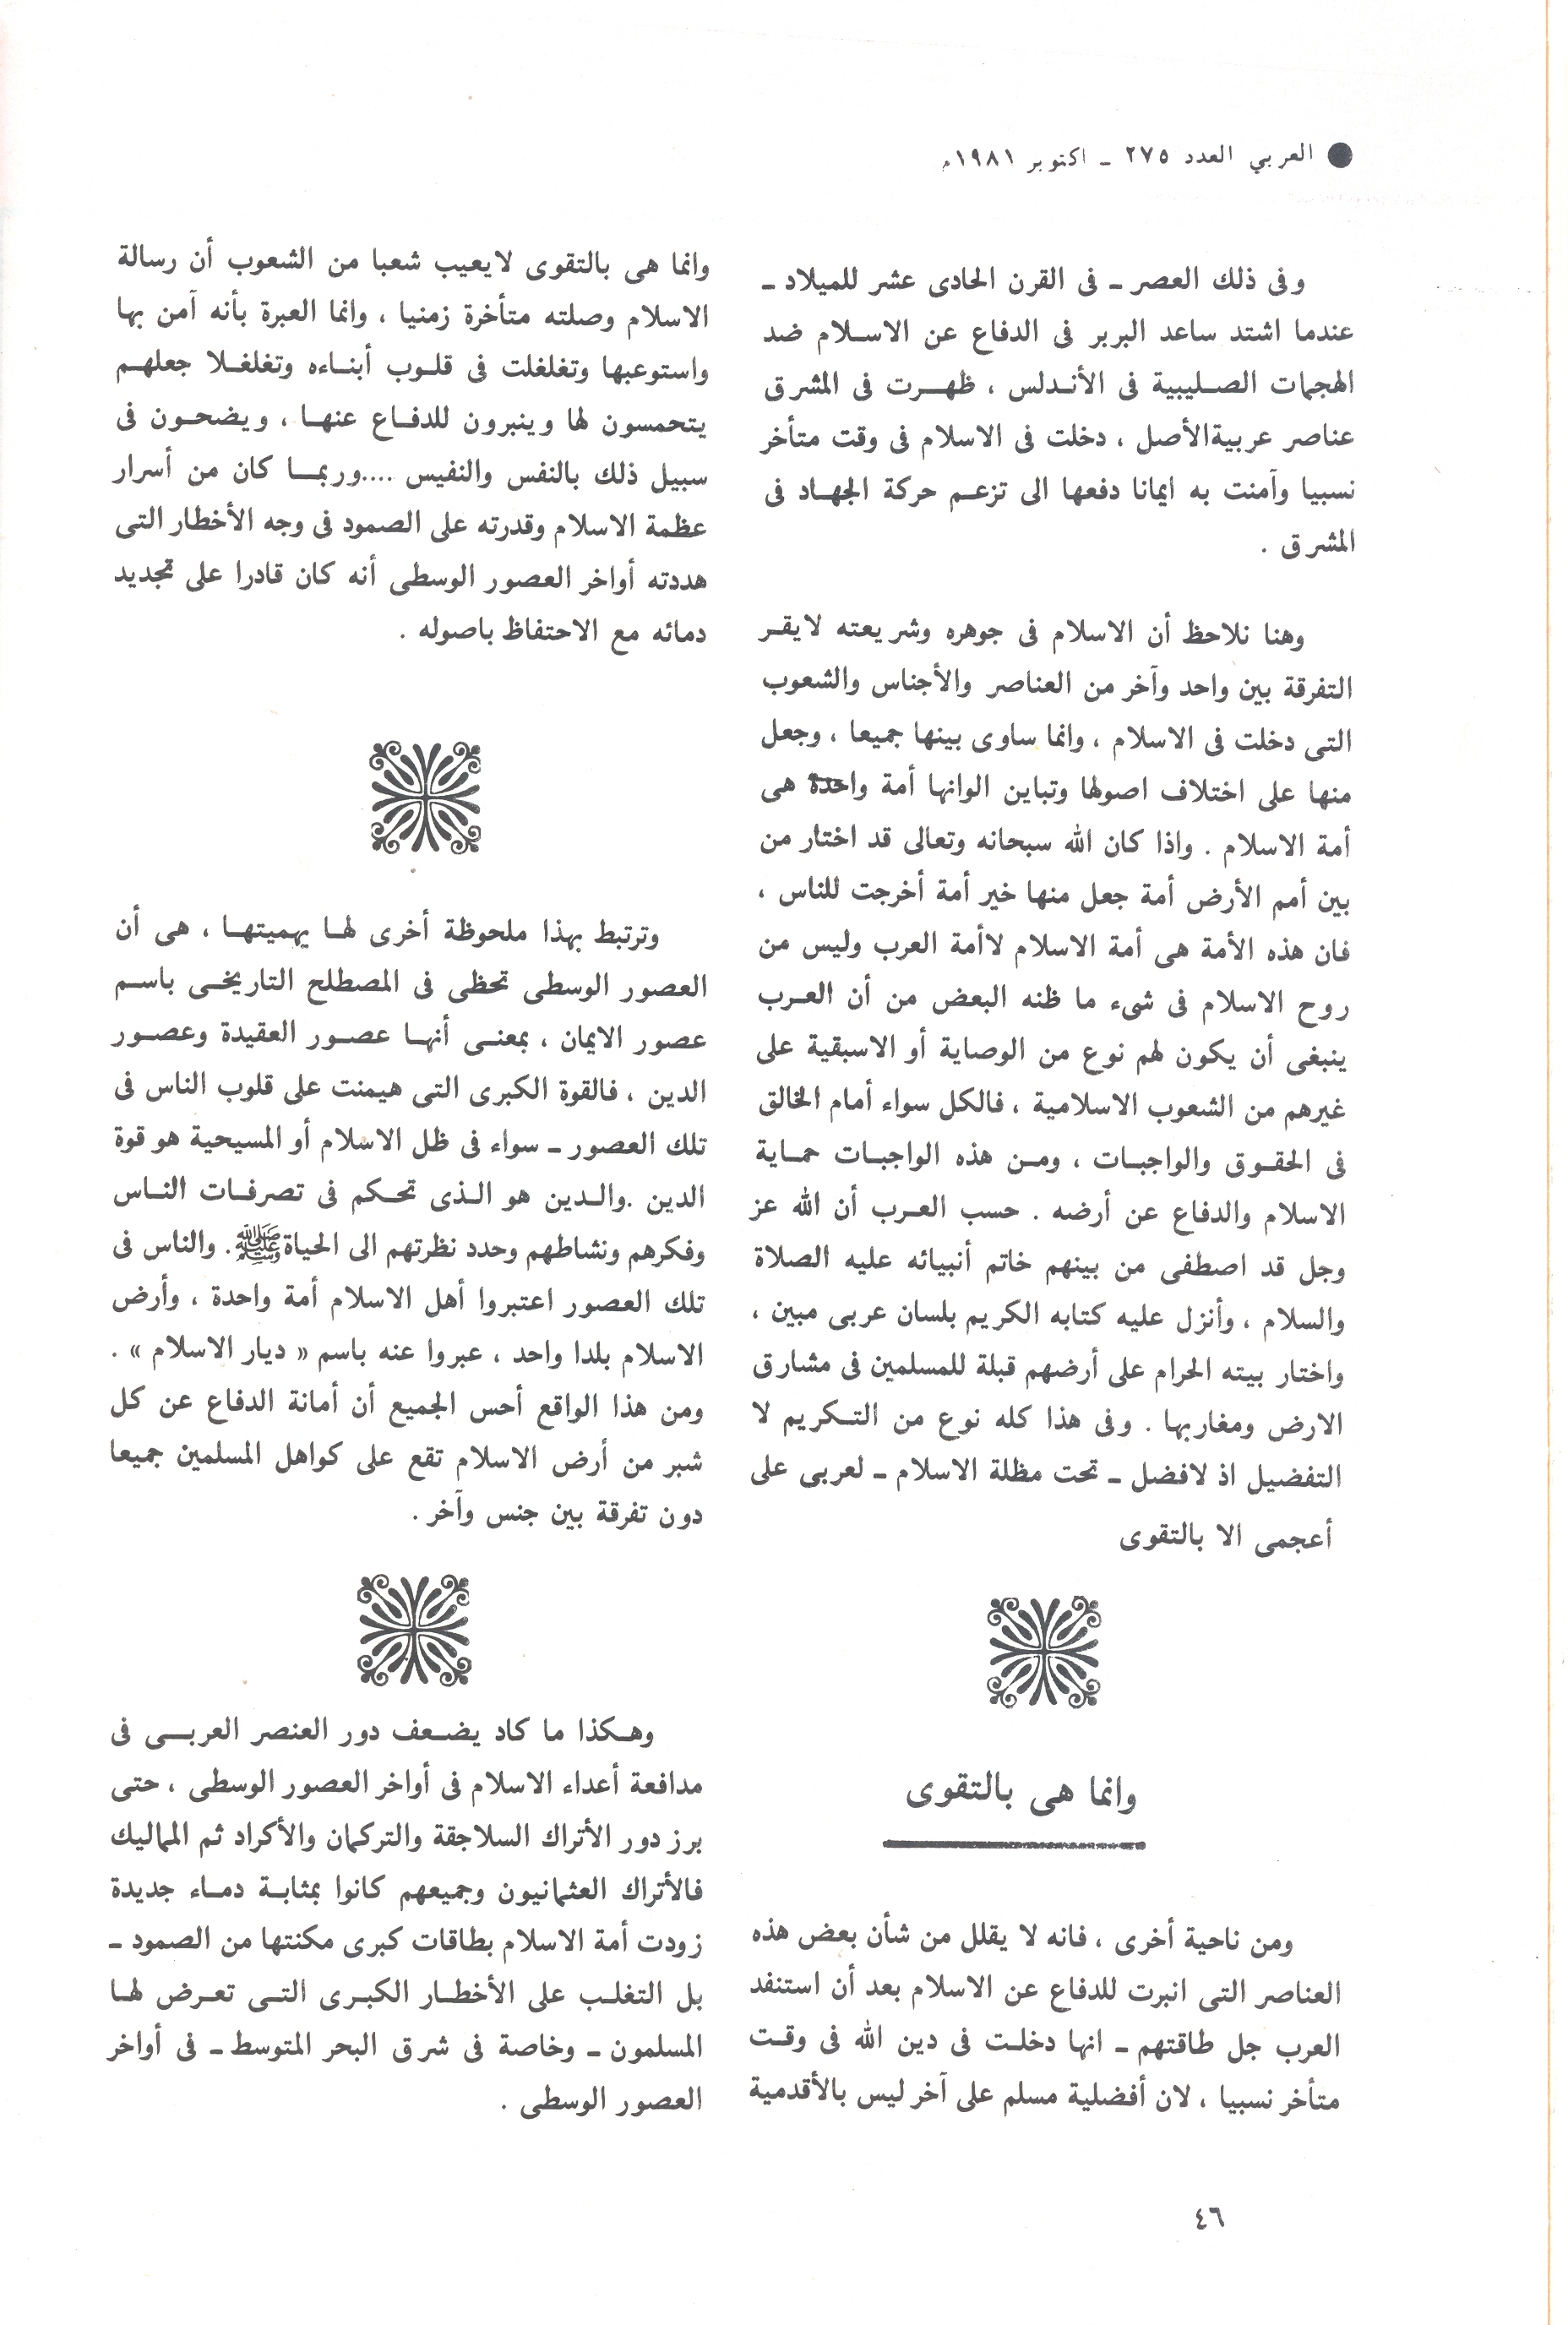 ● العربي العدد ٢٧٥ ـ اكتوبر ١٩٨١م
وفى ذلك العصر ـ فى القرن الحادى عشر للميلاد ـ
عندما اشتد ساعد البربر فى الدفاع عن الاسلام ضد
الهجمات الصليبية فى الأندلس ، ظهرت فى المشرق
عناصر عربيةالأصل ، دخلت فى الاسلام فى وقت متأخر
نسبيا وآمنت به ايمانا دفعها الى تزعم حركة الجهاد فى
المشرق .
وهنا نلاحظ أن الاسلام فى جوهره وشريعته لايقر
التفرقة بين واحد وآخر من العناصر والأجناس والشعوب
التى دخلت فى الاسلام ، وانما ساوى بينها جميعا ، وجعل
منها على اختلاف اصولها وتباين الوانها أمة واحدة هى
أمة الاسلام . واذا كان الله سبحانه وتعالى قد اختار من
بين أمم الأرض أمة جعل منها خير أمة أخرجت للناس ،
فان هذه الأمة هى أمة الاسلام لاأمة العرب وليس من
روح الاسلام فى شىء ما ظنه البعض من أن العرب
ينبغى أن يكون لهم نوع من الوصاية أو الاسبقية على
غيرهم من الشعوب الاسلامية ، فالكل سواء أمام الخالق
فى الحقوق والواجبات ، ومن هذه الواجبات حماية
الاسلام والدفاع عن أرضه . حسب العرب أن الله عز
وجل قد اصطفى من بينهم خاتم أنبيائه عليه الصلاة
والسلام ، وأنزل عليه كتابه الكريم بلسان عربى مبين ،
واختار بيته الحرام على أرضهم قبلة للمسلمين فى مشارق
الارض ومغاربها . وفى هذا كله نوع من التكريم لا
التفضيل اذ لافضل ـ تحت مظلة الاسلام ـ لعربى على
أعجمى الا بالتقوى
وانما هى بالتقوى
ومن ناحية أخرى ، فانه لا يقلل من شأن بعض هذه
العناصر التى انبرت للدفاع عن الاسلام بعد أن استنفد
العرب جل طاقتهم ـ انها دخلت فى دين الله فى وقت
متأخر نسبيا ، لان أفضلية مسلم على آخر ليس بالأقدمية
وانما هى بالتقوى لايعيب شعبا من الشعوب أن رسالة
الاسلام وصلته متأخرة زمنيا ، وانما العبرة بأنه آمن بها
واستوعبها وتغلغلت فى قلوب أبناءه وتغلغلا جعلهم
يتحمسون لها وينبرون للدفاع عنها ، ويضحون فى
سبيل ذلك بالنفس والنفيس ....وربما كان من أسرار
عظمة الاسلام وقدرته على الصمود فى وجه الأخطار التى
هددته أواخر العصور الوسطى أنه كان قادرا على تجديد
دمائه مع الاحتفاظ باصوله .
وترتبط بهذا ملحوظة أخرى لها يهميتها ، هى أن
العصور الوسطى تحظى فى المصطلح التاريخى باسم
عصور الايمان ، بمعنى أنها عصور العقيدة وعصور
الدين ، فالقوة الكبرى التى هيمنت على قلوب الناس فى
تلك العصور ـ سواء فى ظل الاسلام أو المسيحية هو قوة
الدين .والدين هو الذى تحكم فى تصرفات الناس
وفكرهم ونشاطهم وحدد نظرتهم الى الحياةﷺ. والناس فى
تلك العصور اعتبروا أهل الاسلام أمة واحدة ، وأرض
الاسلام بلدا واحد ، عبروا عنه باسم « ديار الاسلام » .
ومن هذا الواقع أحس الجميع أن أمانة الدفاع عن كل
شبر من أرض الاسلام تقع على كواهل المسلمين جميعا
دون تفرقة بين جنس وآخر .
وهكذا ما كاد يضعف دور العنصر العربى فى
مدافعة أعداء الاسلام فى أواخر العصور الوسطى ، حتى
برز دور الأتراك السلاجقة والتركمان والأكراد ثم المماليك
فالأتراك العثمانيون وجميعهم كانوا بمثابة دماء جديدة
زودت أمة الاسلام بطاقات كبرى مكنتها من الصمود ـ
بل التغلب على الأخطار الكبرى التى تعرض لها
المسلمون ـ وخاصة فى شرق البحر المتوسط ـ فى أواخر
العصور الوسطى .
٤٦